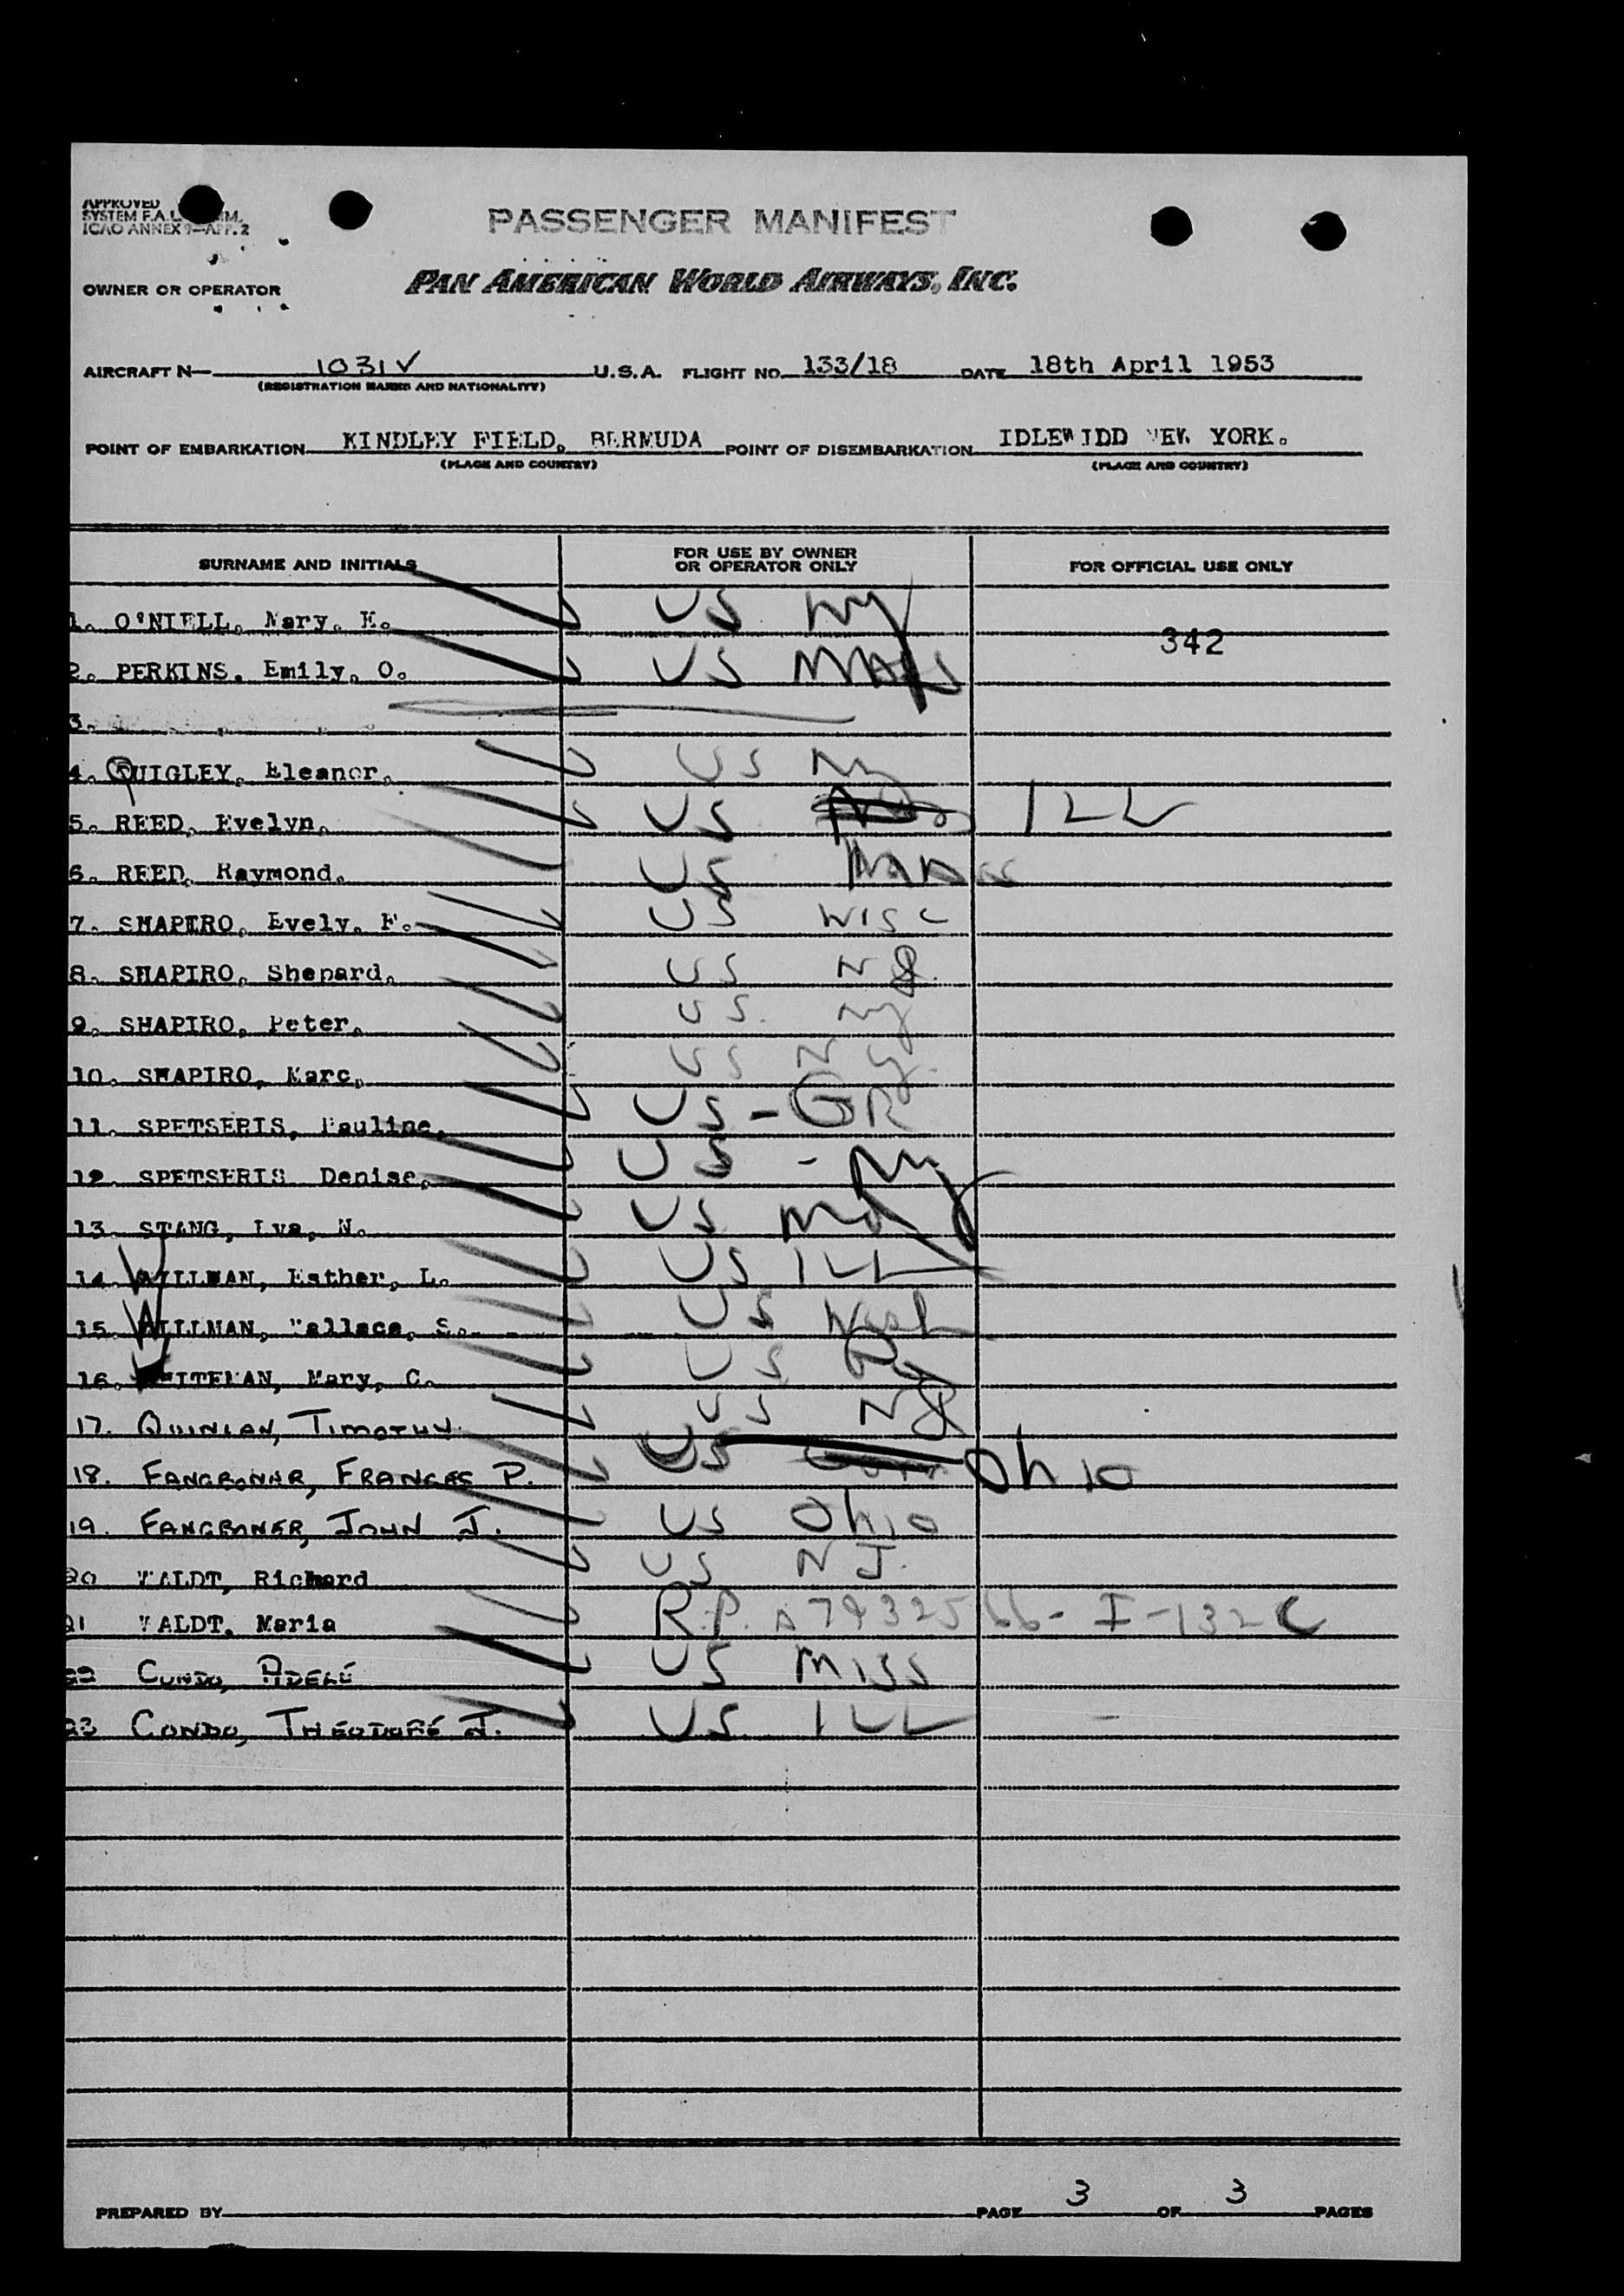 APPROVED
SYSTEM F.A.L.
ICAO ANNEX 9—APP. 2
PASSENGER MANIFEST
OWNER OR OPERATOR PAN AMERICAN WORLD AIRWAYS, INC.
AIRCRAFT N— 1031V U.S.A. FLIGHT NO. 133/18 DATE 18th April 1953
(REGISTRATION MARKS AND NATIONALITY)
POINT OF EMBARKATION KINDLEY FIELD, BERMUDA POINT OF DISEMBARKATION IDLEWIDD NEW YORK.
(PLACE AND COUNTRY) (PLACE AND COUNTRY)
SURNAME AND INITIALS FOR USE BY OWNER OR OPERATOR ONLY FOR OFFICIAL USE ONLY
1. O'NIELL, Mary, E. US NY
342
2. PERKINS, Emily, O. US MASS
3.
4. QUIGLEY, Eleanor. US NY
5. REED, Evelyn. US ILL
6. REED, Raymond. US
7. SHAPIRO, Evely. F. US WISC
8. SHAPIRO, Shepard. US NY
9. SHAPIRO, Peter. US. NY
10. SHAPIRO, Marc. US NY.
11. SPETSERIS, Pauline. US - GR
12. SPETSERIS Denise. US - NY
13. STANG, Lva, N. US
14. WILLMAN, Esther, L. US ILL
15. WILLMAN, Wallace, S. US Wash
16. WHITEMAN, Mary, C. US Pa
17. QUINLAN, TIMOTHY. US NY
18. FANGBONER, FRANCES P. US Ohio
19. FANGBONER, JOHN J. US Ohio
20 WALDT, Richard US N J.
21 WALDT, Maria R.P. A7932566 - I-132C
22 CONDO, ADELE US MISS
23 CONDO, THEODORE J. US ILL
PREPARED BY PAGE 3 OF 3 PAGES